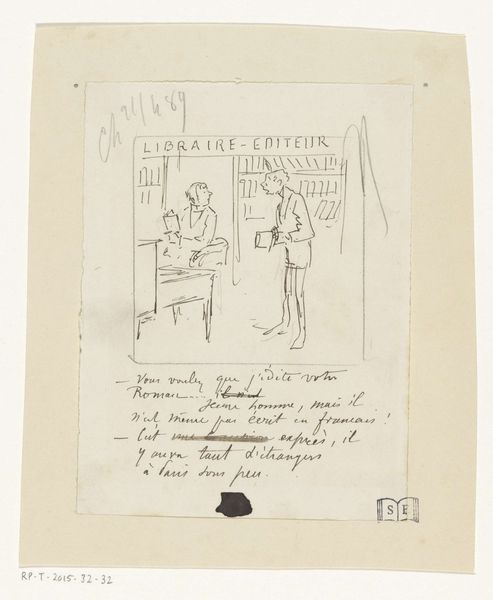 Ch 21/4 89
LIBRAIRE-EDITEUR
— Vous voulez que j'édite votre
Roman... il n'est
Jeune homme, mais il
n'est même pas écrit en francais!
— C'est une exprès, il
y aura tant d'étrangers
à Paris sous peu.
S E
RP-T-2015-32-32